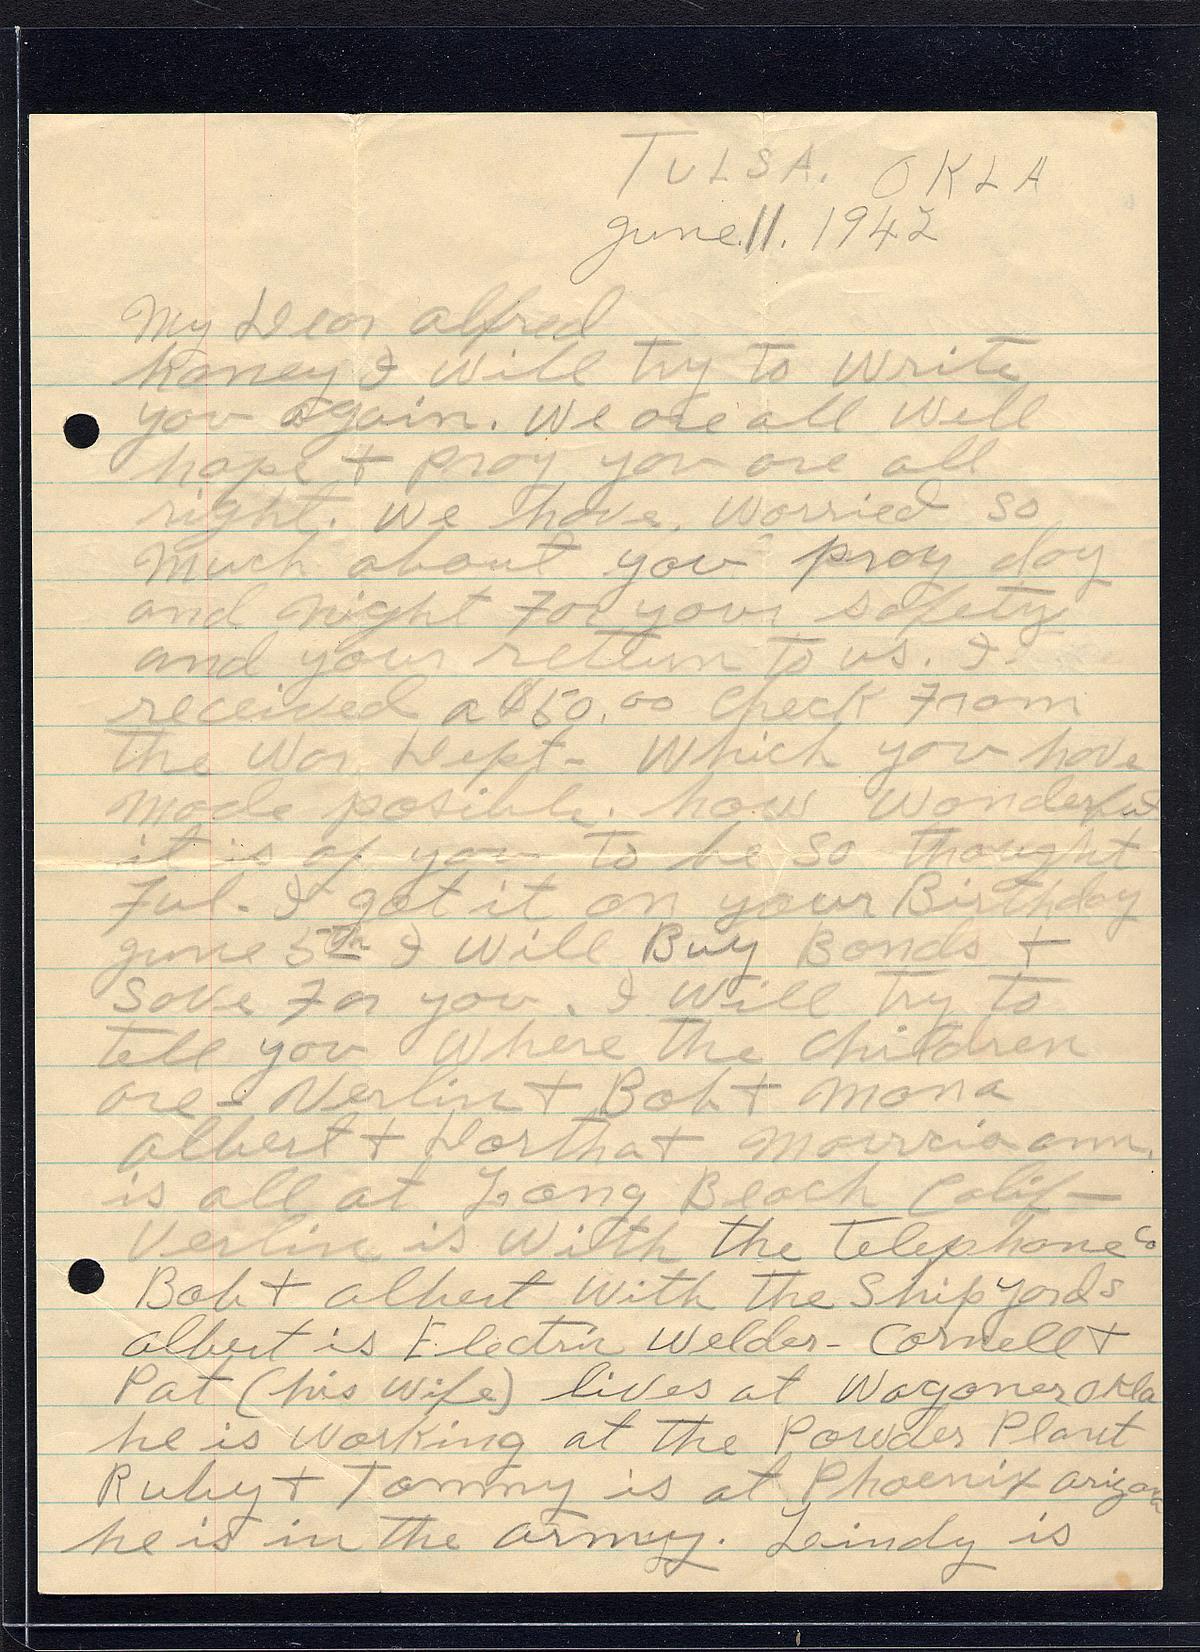 TULSA. OKLA
June. 11. 1942
My Dear Alfred
Honey I will try to write
you again. We are all well
hope + pray you are all
right. We have. Worried so
much about you pray day
and night For your safety
and your return to us. I.
received a $50.00 Check From
the War Dept- Which you have
made posible. how wonderful
it is of you to be so thought
Ful- I got it on your Birthday
June 5th I will Buy Bonds +
save For you. I will try to
tell you Where the children
are - Verlin + Bob + Mona
albert + Dortha + Maurcia ann.
is all at Long Beach Calif-
Verlin is with the Telephone Co
Bob + albert with the Ship yards
albert is Electric Welder- Cornell +
Pat (his wife) lives at Wagoner Okla
he is working at the Powder Plant
Ruby + Tommy is at Phoenix arizona
he is in the army. Leindy is